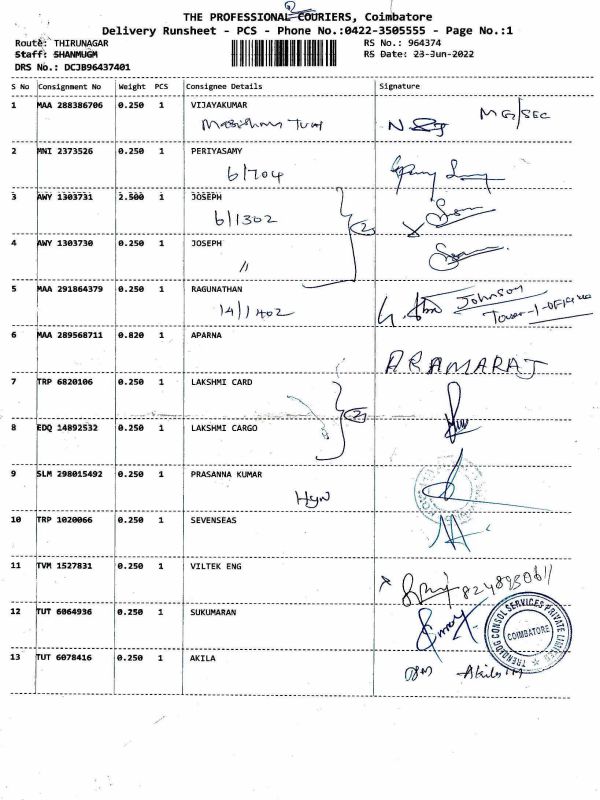 THE PROFESSIONAL COURIERS, Coimbatore
Delivery Runsheet - PCS - Phone No.:0422-3505555 - Page No.:1
Route: THIRUNAGAR RS No.: 964374
Staff: SHANMUGM RS Date: 23-Jun-2022
DRS No.: DCJB96437401
S No Consignment No Weight PCS Consignee Details Signature
1 MAA 288386706 0.250 1 VIJAYAKUMAR
MG/SEC
2 MNI 2373526 0.250 1 PERIYASAMY
6/704
3 AWY 1303731 2.500 1 JOSEPH
6/1302
2
4 AWY 1303730 0.250 1 JOSEPH
"
5 MAA 291864379 0.250 1 RAGUNATHAN
14/1402
Johnson
Tower-1-Office
6 MAA 289568711 0.820 1 APARNA
ARAMARAJ
7 TRP 6820106 0.250 1 LAKSHMI CARD
2
8 EDQ 14892532 0.250 1 LAKSHMI CARGO
9 SLM 298015492 0.250 1 PRASANNA KUMAR
10 TRP 1020066 0.250 1 SEVENSEAS
11 TVM 1527831 0.250 1 VILTEK ENG
12 TUT 6064936 0.250 1 SUKUMARAN
COIMBATORE
13 TUT 6078416 0.250 1 AKILA